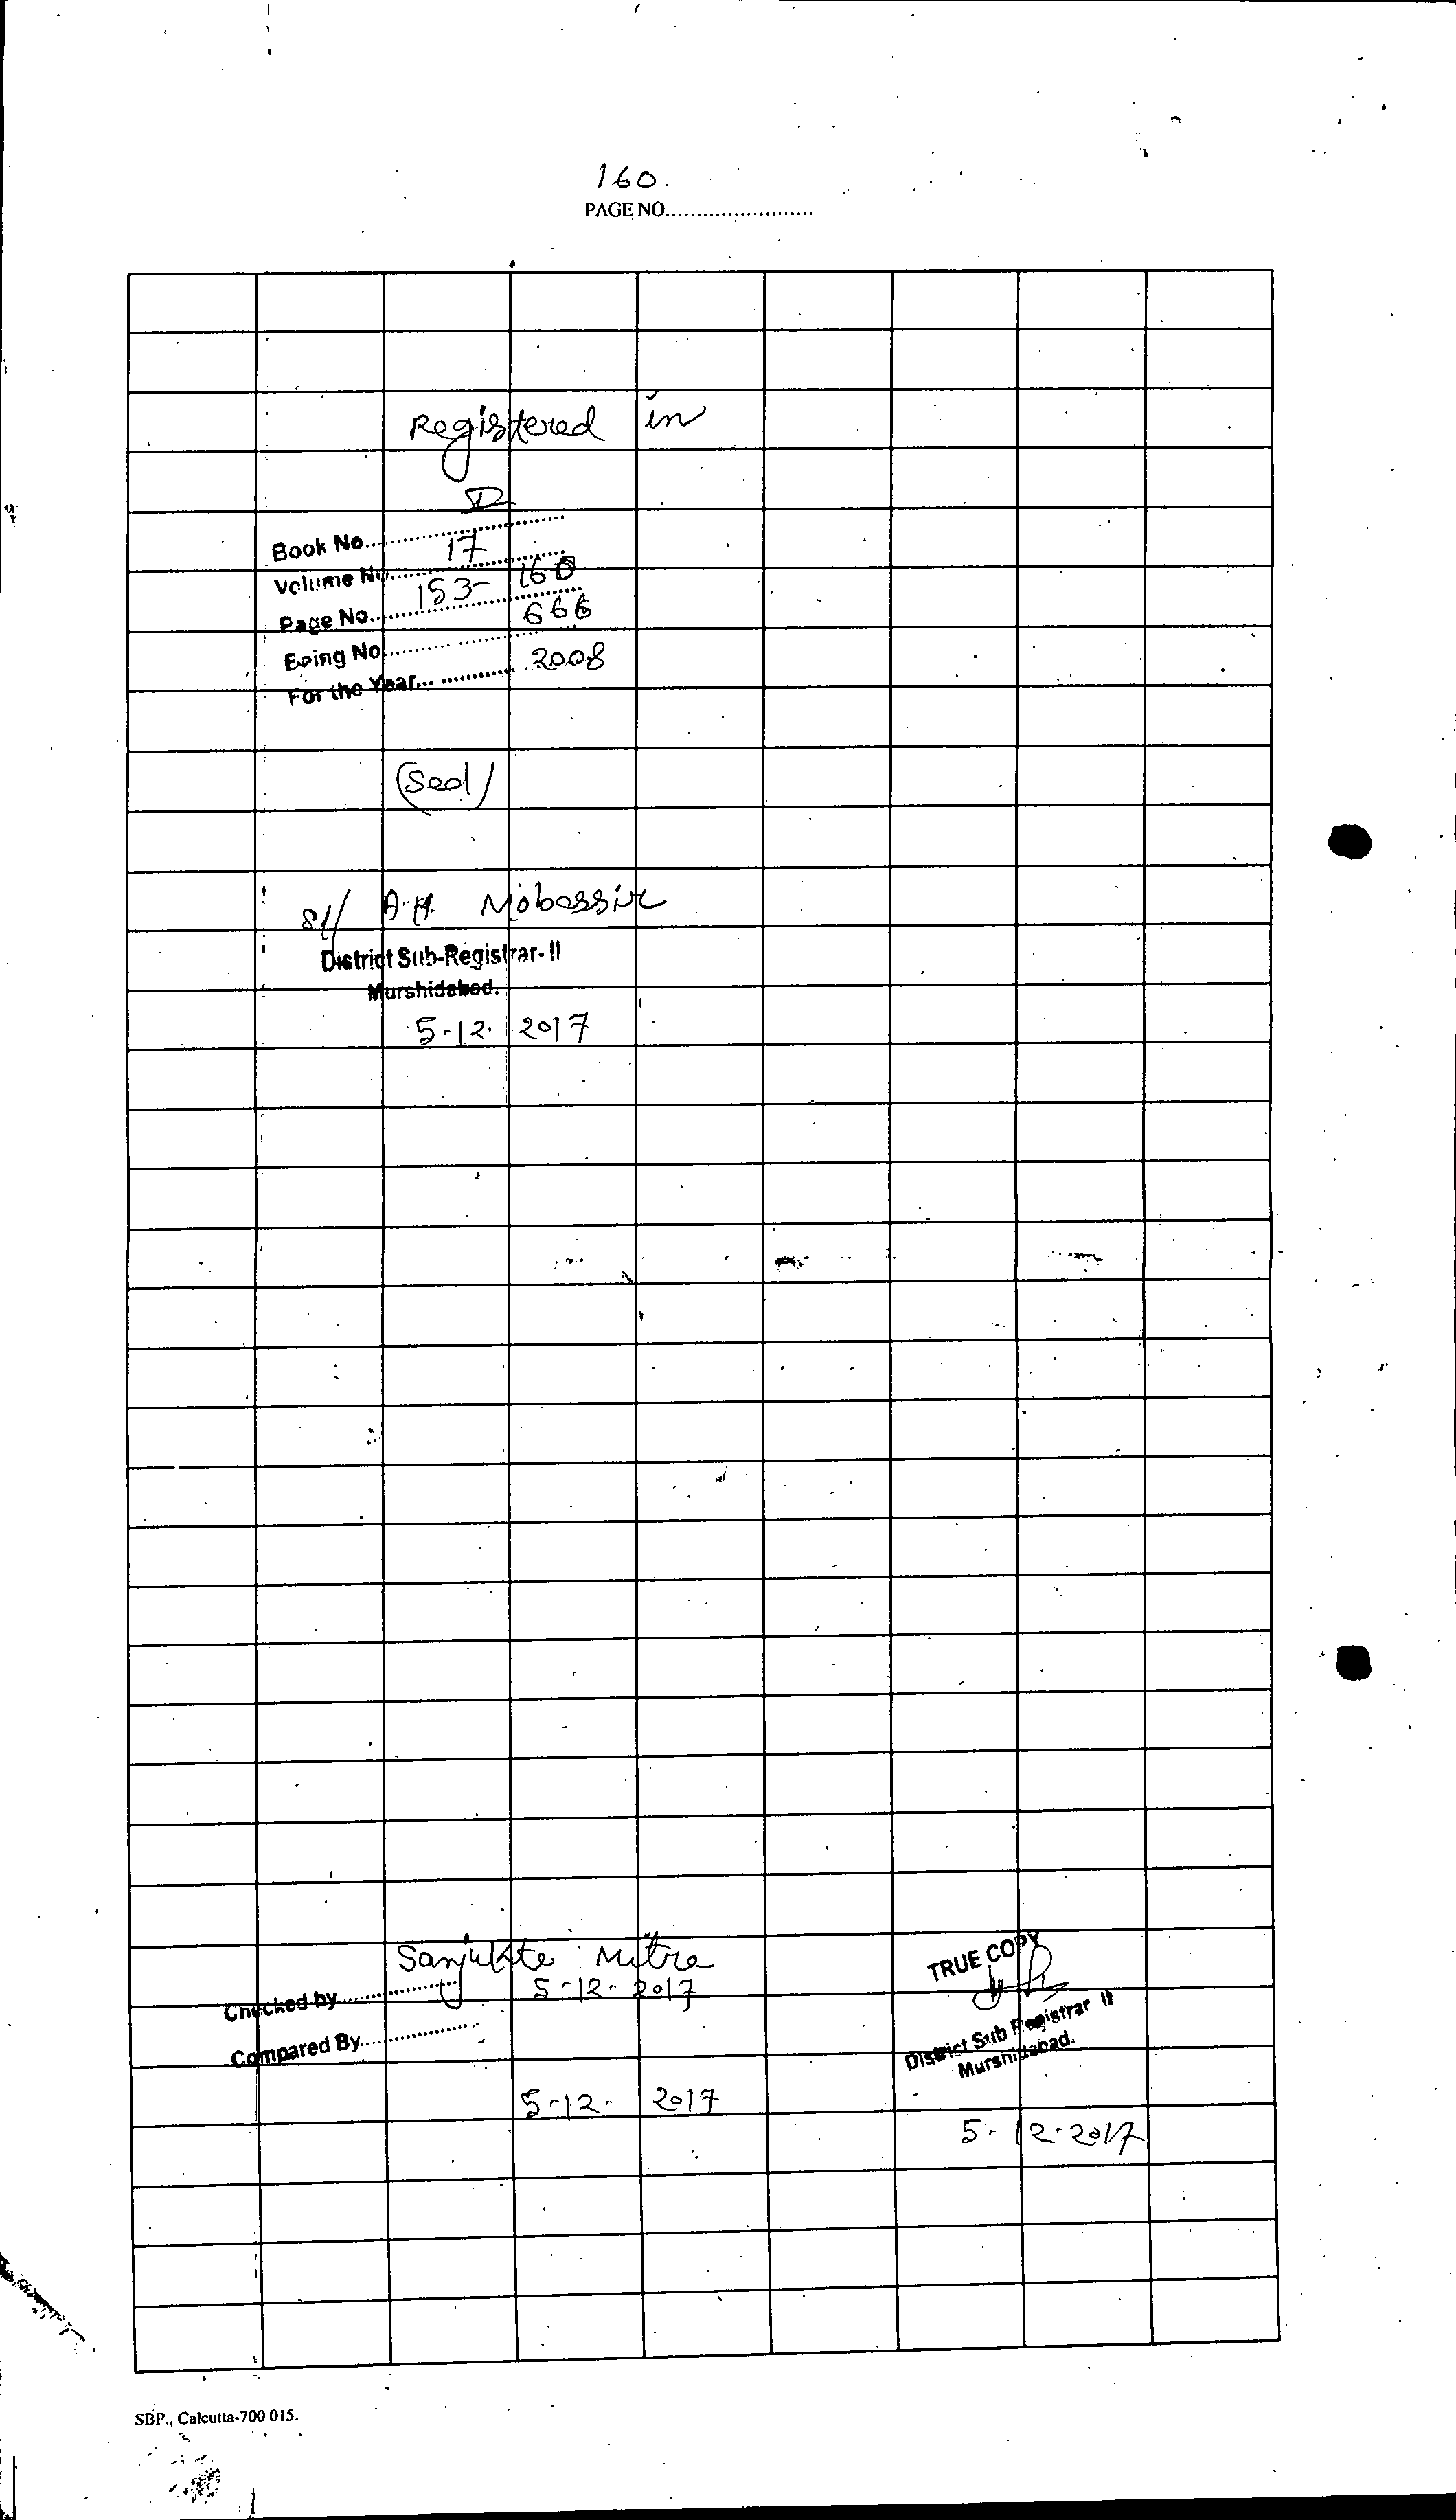 160
PAGE NO.........................
Registered in
Book No.....................
Volume No..... 17
Page No..... 153- 160
Being No..... 666
For the Year... 2008
(Seal)
Sd/ A.H. Mobassir
District Sub-Registrar-II
Murshidabad.
5-12. 2017
Sanjukta Mitra
Checked by..................... 5-12-2017
Compared By.....................
5-12- 2017
TRUE COPY
District Sub Registrar II
Murshidabad.
5-12-2017
SBP., Calcutta-700 015.